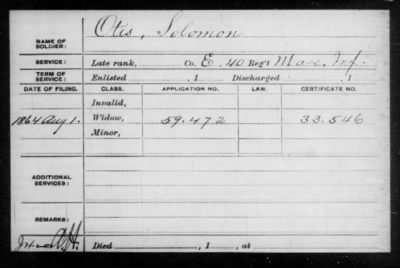 NAME OF SOLDIER: Otis, Solomon
SERVICE: Late rank, Co. E, 40 Reg't Mass. Inf.
TERM OF SERVICE: Enlisted , 1 Discharged , 1
DATE OF FILING. CLASS. APPLICATION NO. LAW. CERTIFICATE NO.
Invalid,
1864 Aug 1. Widow, 59.472 33.546
Minor,
ADDITIONAL SERVICES:
REMARKS:
Died , 1 , at